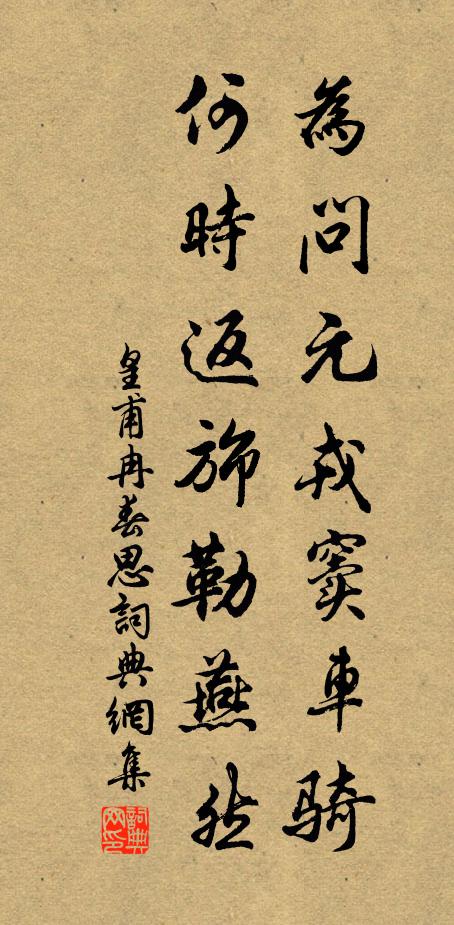 為問元戎竇車騎
何時返旆勒燕然
皇甫冉春思詞典網集
詞典网印